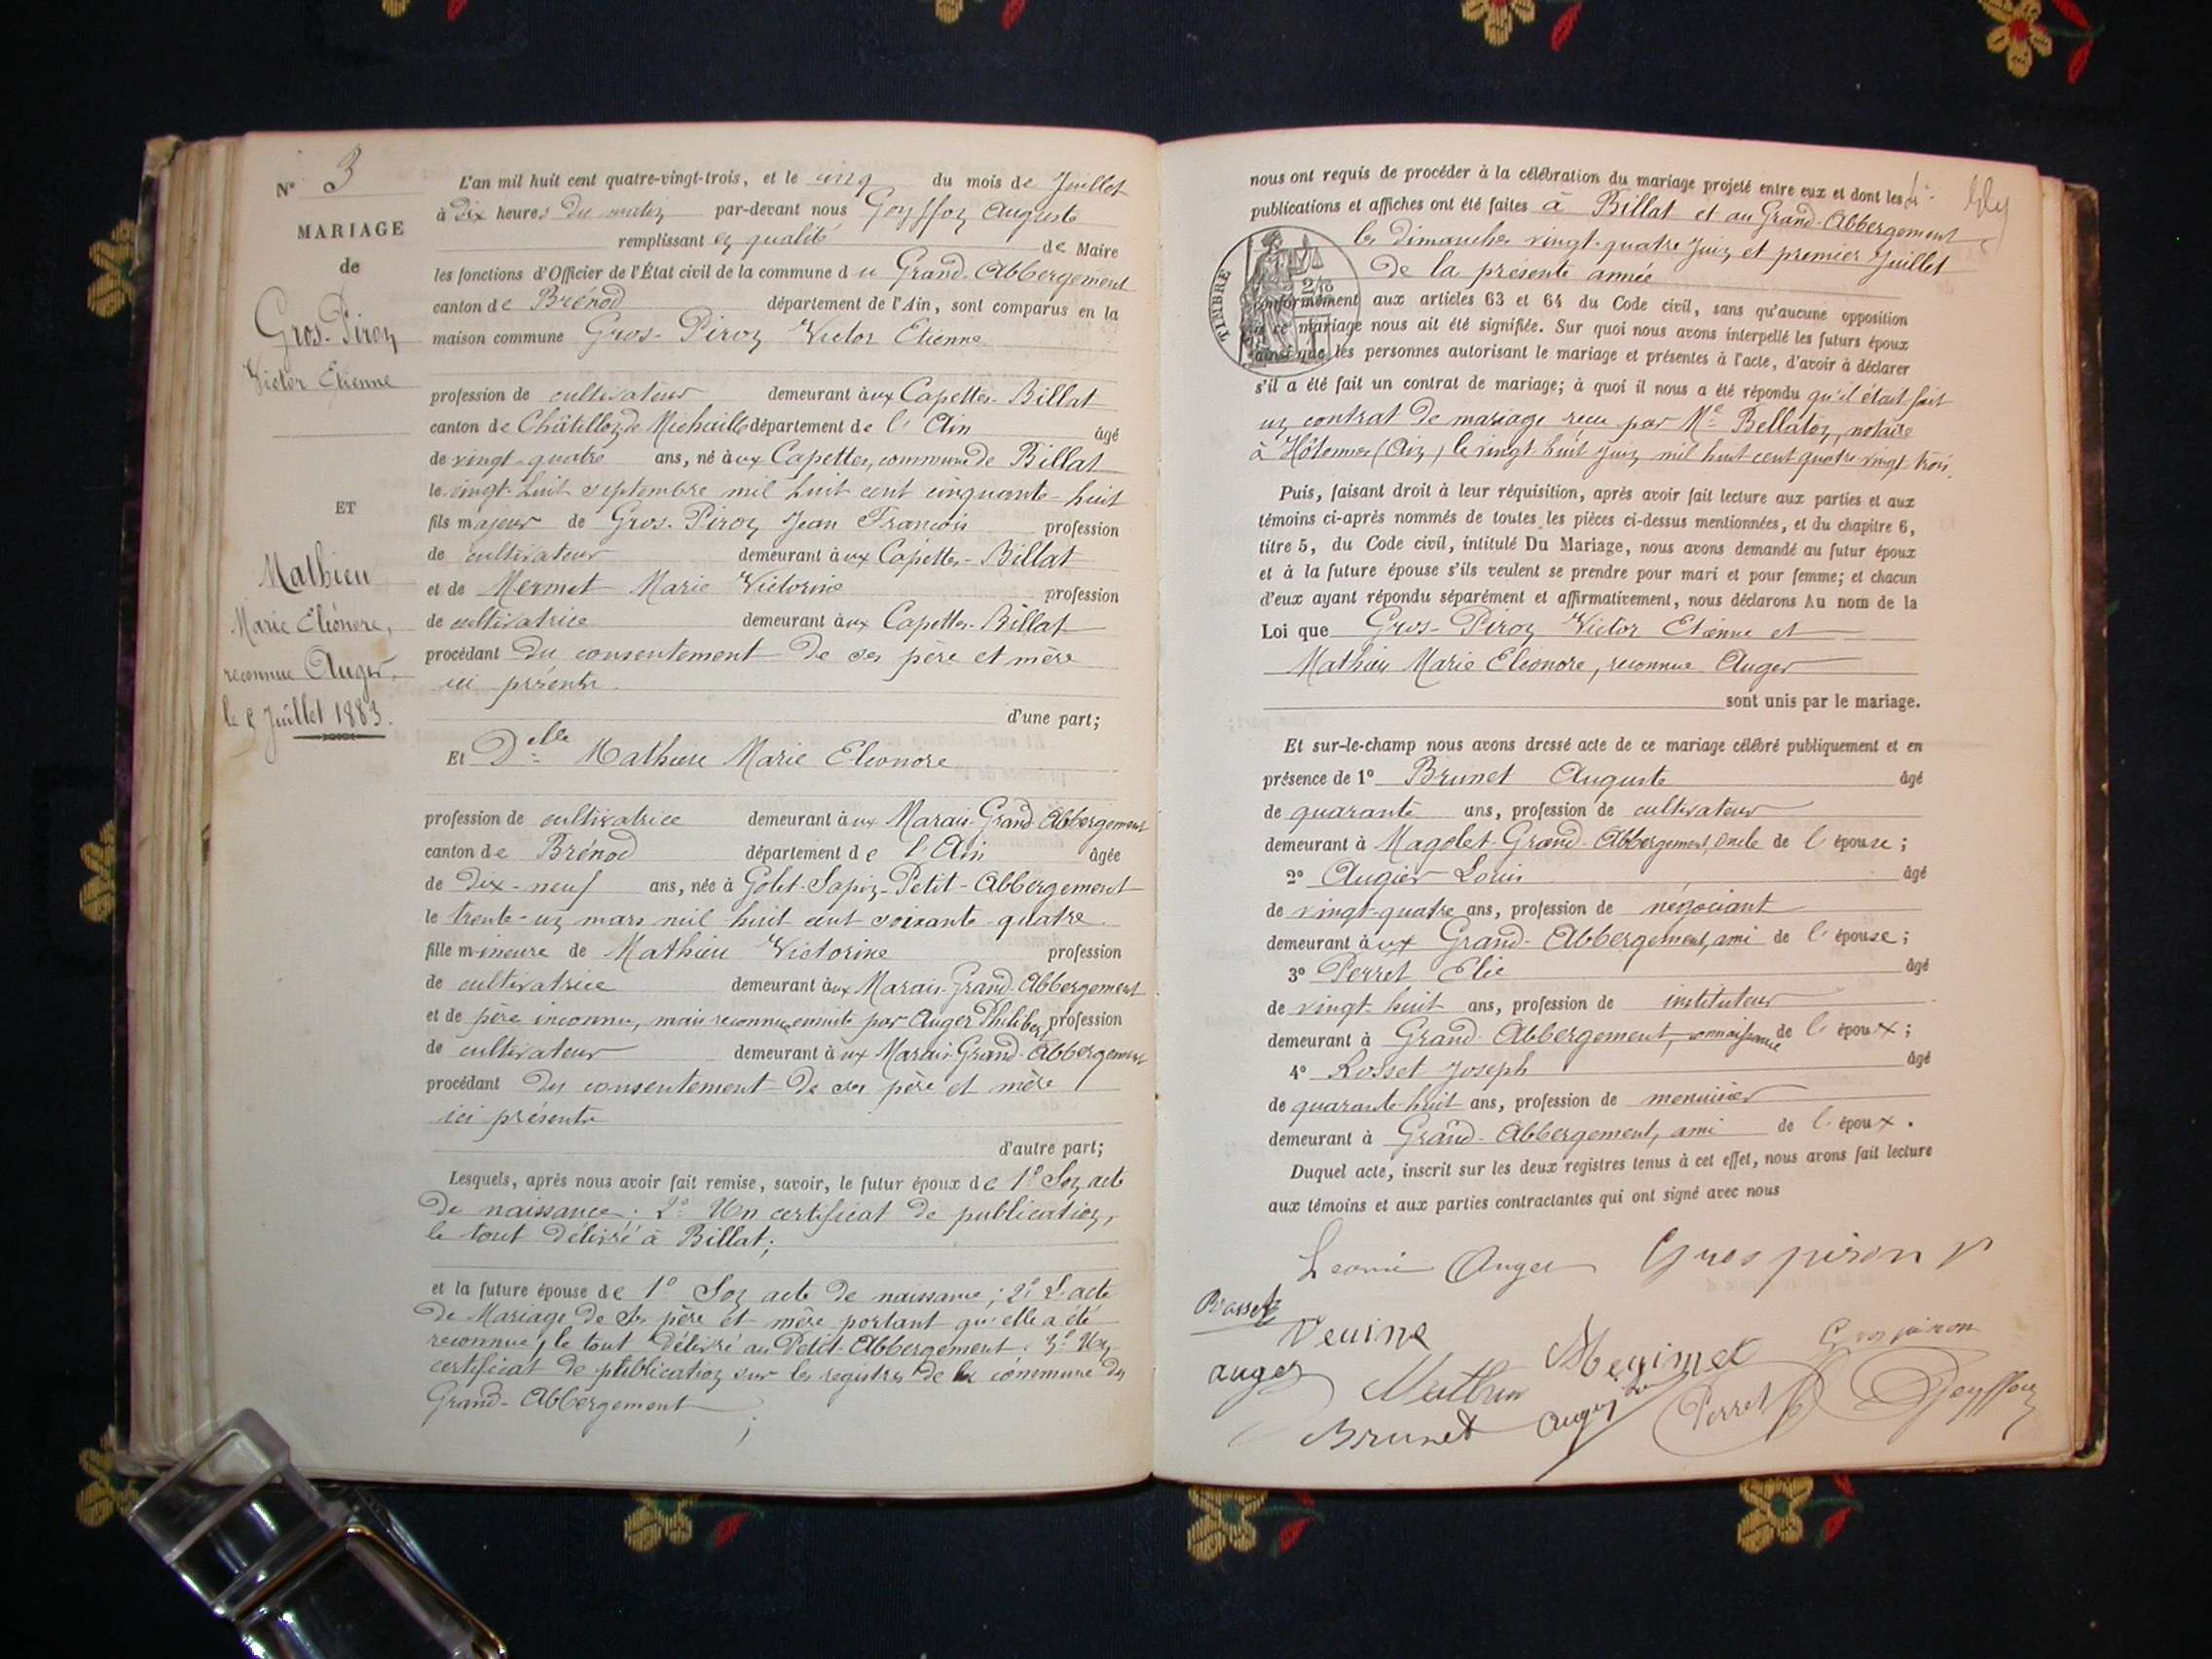 N° 3
MARIAGE
de
Gros-Piron
Victor Etienne
ET
Mathieu
Marie Eléonore,
reconnue Auger,
le 5 Juillet 1883.
L'an mil huit cent quatre-vingt-trois, et le cinq du mois de Juillet
à dix heures du matin par-devant nous Goyffon Auguste
remplissant en qualité de Maire
les fonctions d'Officier de l'État civil de la commune du Grand-Abbergement
canton de Brénod département de l'Ain, sont comparus en la
maison commune Gros-Piron Victor Etienne
profession de cultivateur demeurant aux Capettes-Billat
canton de Châtillon de Michaille département de l'Ain âgé
de vingt-quatre ans, né aux Capettes, commune de Billat
le vingt-huit septembre mil huit cent cinquante-huit
fils majeur de Gros-Piron Jean François profession
de cultivateur demeurant aux Capettes-Billat
et de Mermet Marie Victorine profession
de cultivatrice demeurant aux Capettes-Billat
procédant du consentement de ses père et mère
ici présents.
d'une part;
Et Delle Mathieu Marie Eléonore
profession de cultivatrice demeurant aux Marais-Grand-Abbergement
canton de Brénod département de l'Ain âgée
de dix-neuf ans, née à Golet-Sapin-Petit-Abbergement
le trente-un mars mil huit cent soixante-quatre
fille mineure de Mathieu Victorine profession
de cultivatrice demeurant aux Marais-Grand-Abbergement
et de père inconnu, mais reconnue ensuite par Auger Philibert profession
de cultivateur demeurant aux Marais-Grand-Abbergement
procédant du consentement de ses père et mère
ici présents
d'autre part;
Lesquels, après nous avoir fait remise, savoir, le futur époux de 1° Son acte
de naissance. 2° Un certificat de publication,
le tout délivré à Billat;
et la future épouse de 1° Son acte de naissance; 2° L'acte
de Mariage de ses père et mère portant qu'elle a été
reconnue, le tout délivré au Petit-Abbergement. 3° Un
certificat de publication sur les registres de la commune du
Grand-Abbergement;
nous ont requis de procéder à la célébration du mariage projeté entre eux et dont les
publications et affiches ont été faites à Billat et au Grand-Abbergement
les dimanches vingt-quatre Juin et premier Juillet
de la présente année
TIMBRE
conformément aux articles 63 et 64 du Code civil, sans qu'aucune opposition
à ce mariage nous ait été signifiée. Sur quoi nous avons interpellé les futurs époux
ainsi que les personnes autorisant le mariage et présentes à l'acte, d'avoir à déclarer
s'il a été fait un contrat de mariage; à quoi il nous a été répondu qu'il était fait
un contrat de mariage reçu par Me Bellaton, notaire
à Hotonnes (Ain) le vingt huit juin mil huit cent quatre vingt trois.
Puis, faisant droit à leur réquisition, après avoir fait lecture aux parties et aux
témoins ci-après nommés de toutes les pièces ci-dessus mentionnées, et du chapitre 6,
titre 5, du Code civil, intitulé Du Mariage, nous avons demandé au futur époux
et à la future épouse s'ils veulent se prendre pour mari et pour femme; et chacun
d'eux ayant répondu séparément et affirmativement, nous déclarons Au nom de la
Loi que Gros-Piron Victor Etienne et
Mathieu Marie Eléonore, reconnue Auger
sont unis par le mariage.
Et sur-le-champ nous avons dressé acte de ce mariage célébré publiquement et en
présence de 1° Brunet Auguste âgé
de quarante ans, profession de cultivateur
demeurant à Magolet-Grand-Abbergement, oncle de l'épouse;
2° Augier Louis âgé
de vingt-quatre ans, profession de négociant
demeurant aux Grand-Abbergement, ami de l'épouse;
3° Perret Elie âgé
de vingt huit ans, profession de instituteur
demeurant à Grand-Abbergement, connaissance de l'époux;
4° Rosset Joseph âgé
de quarante-huit ans, profession de menuisier
demeurant à Grand-Abbergement, ami de l'époux.
Duquel acte, inscrit sur les deux registres tenus à cet effet, nous avons fait lecture
aux témoins et aux parties contractantes qui ont signé avec nous
Auger Gros piron V
auger Mathieu
Brunet Perret Goyffon